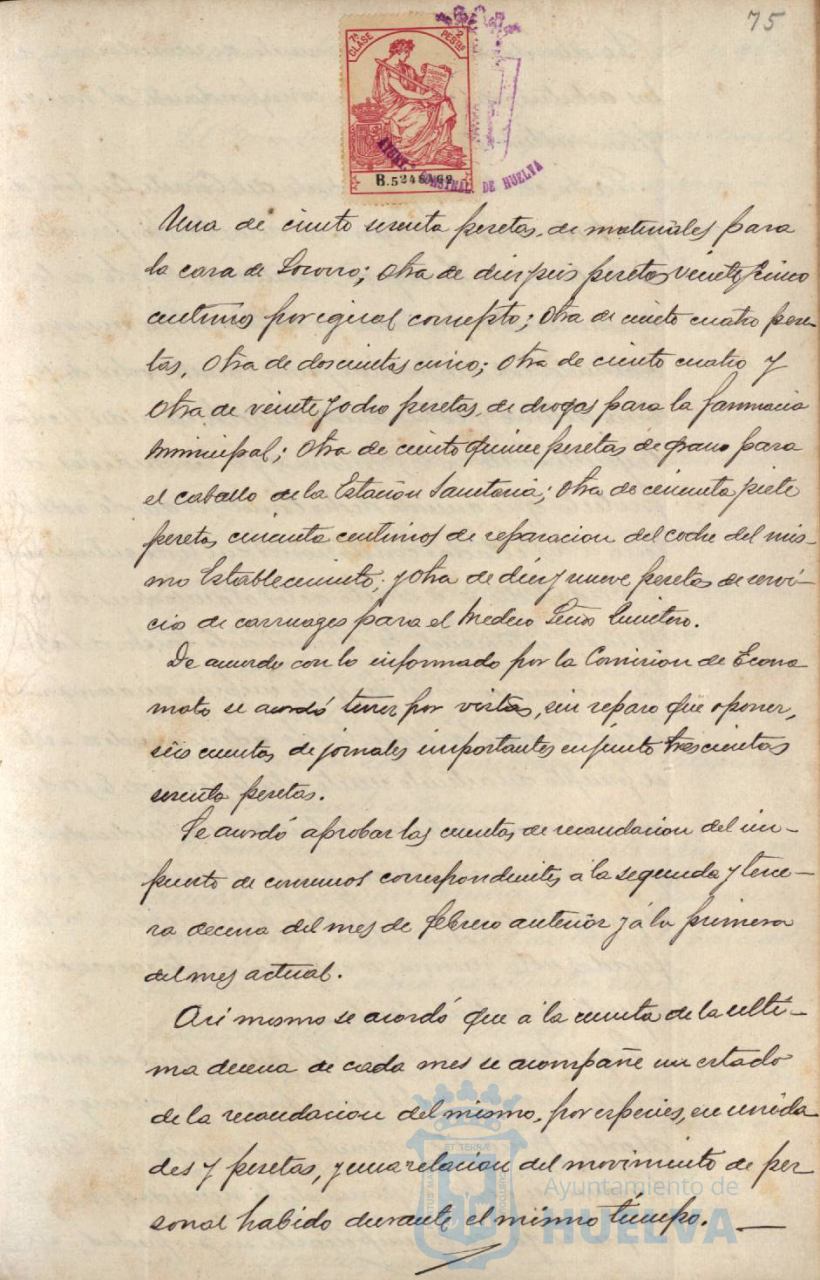 75
7ª CLASE
2 PESTAS
B.5248162
AYUNT. CONSTNAL. DE HUELVA
Una de ciento sesenta pesetas, de materiales para
la casa de Socorro; otra de diez y seis pesetas veinte y cinco
centimos por igual concepto; otra de ciento cuatro pese-
tas, otra de doscientas cinco; otra de ciento cuatro y
otra de veinte y ocho pesetas, de drogas para la farmacia
Municipal; otra de ciento quince pesetas de grano para
el caballo de la Estación Sanitaria; otra de cincuenta y siete
pesetas cincuenta centimos de reparacion del coche del mis-
mo Establecimiento; y otra de diez y nueve pesetas de servi-
cio de carruages para el Medico Señor Quintero.
De acuerdo con lo informado por la Comision de Econo
mato se acordó tener por vistas, sin reparo que oponer,
seis cuentas de jornales importantes en junto trescientas
sesenta pesetas.
Se acordó aprobar las cuentas de recaudacion del im-
puesto de consumos correspondientes á la segunda y terce-
ra decena del mes de febrero anterior y á la primera
del mes actual.
Asi mismo se acordó que á la cuenta de la ulti-
ma decena de cada mes se acompañe un estado
de la recaudacion del mismo, por especies, en unida
des y pesetas, y una relacion del movimiento de per
sonal habido durante el mismo tiempo.
Ayuntamiento de
HUELVA